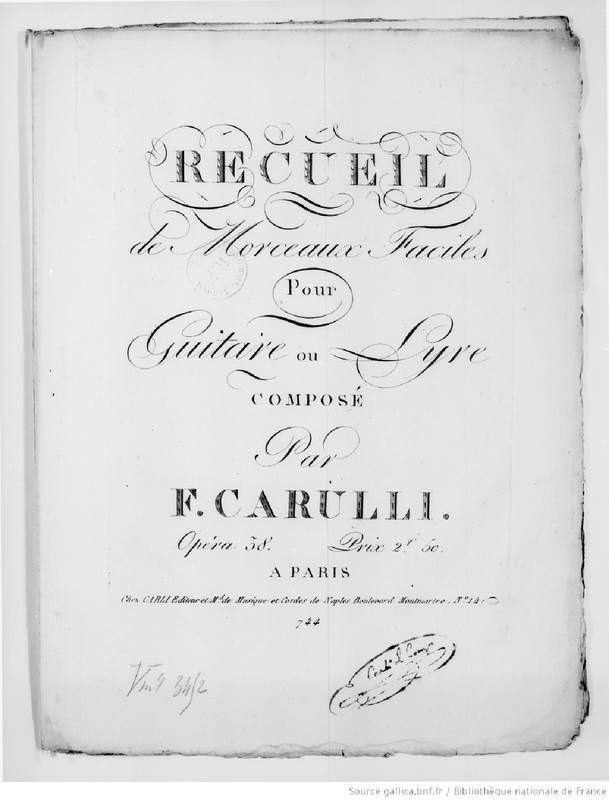 RECUEIL
de Morceaux Faciles
Pour
Guitare ou Lyre
COMPOSÉ
Par
F. CARULLI.
Opéra 38. Prix 2f 50.
A PARIS
Chez CARLI Editeur et Md. de Musique et Cordes de Naples Boulevard Montmartre, No. 14.
744
Vm9 34/2
Source gallica.bnf.fr / Bibliothèque nationale de France